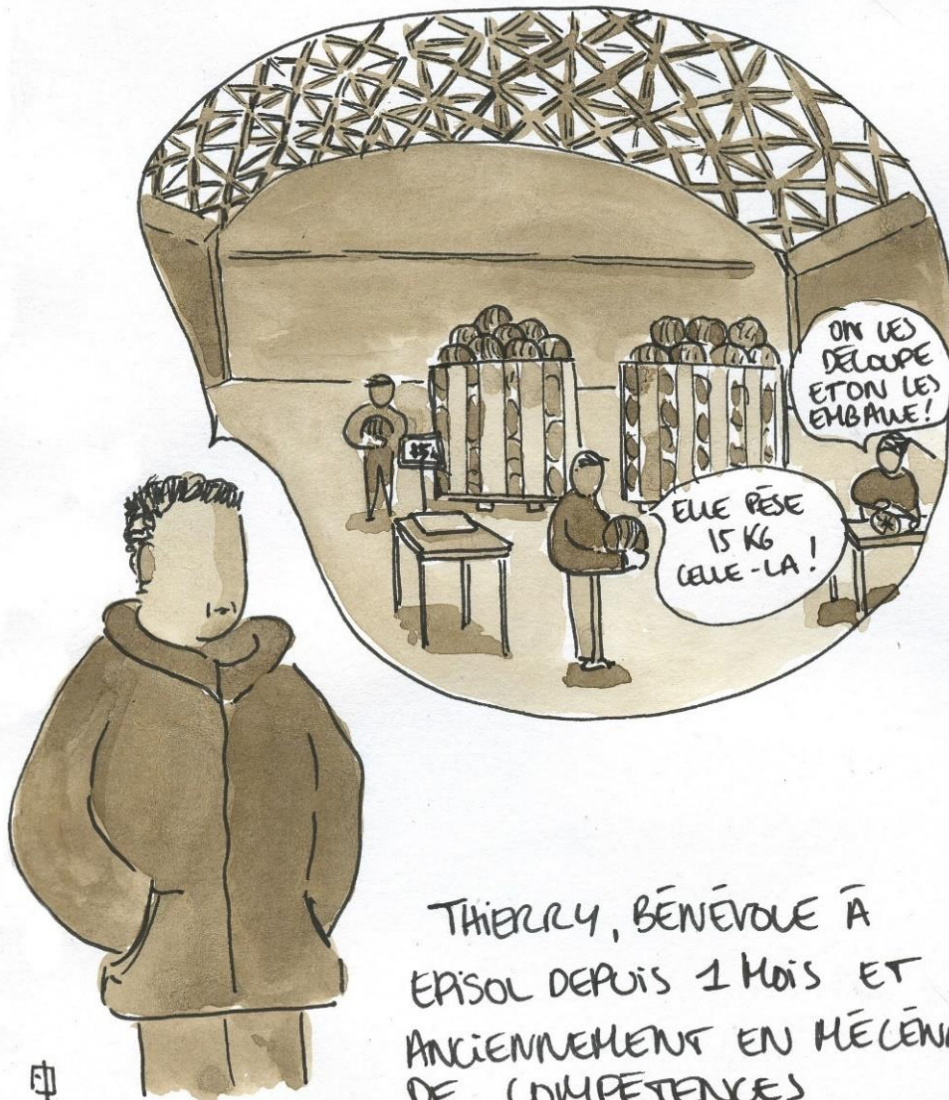 ON LES
DÉCOUPE
ET ON LES
EMBALLE!
ELLE PÈSE
15 KG
CELLE-LÀ!
15
THIERRY, BÉNÉVOLE À
EPISOL DEPUIS 1 MOIS ET
ANCIENNEMENT EN MÉCÉNA
DE COMPÉTENCES